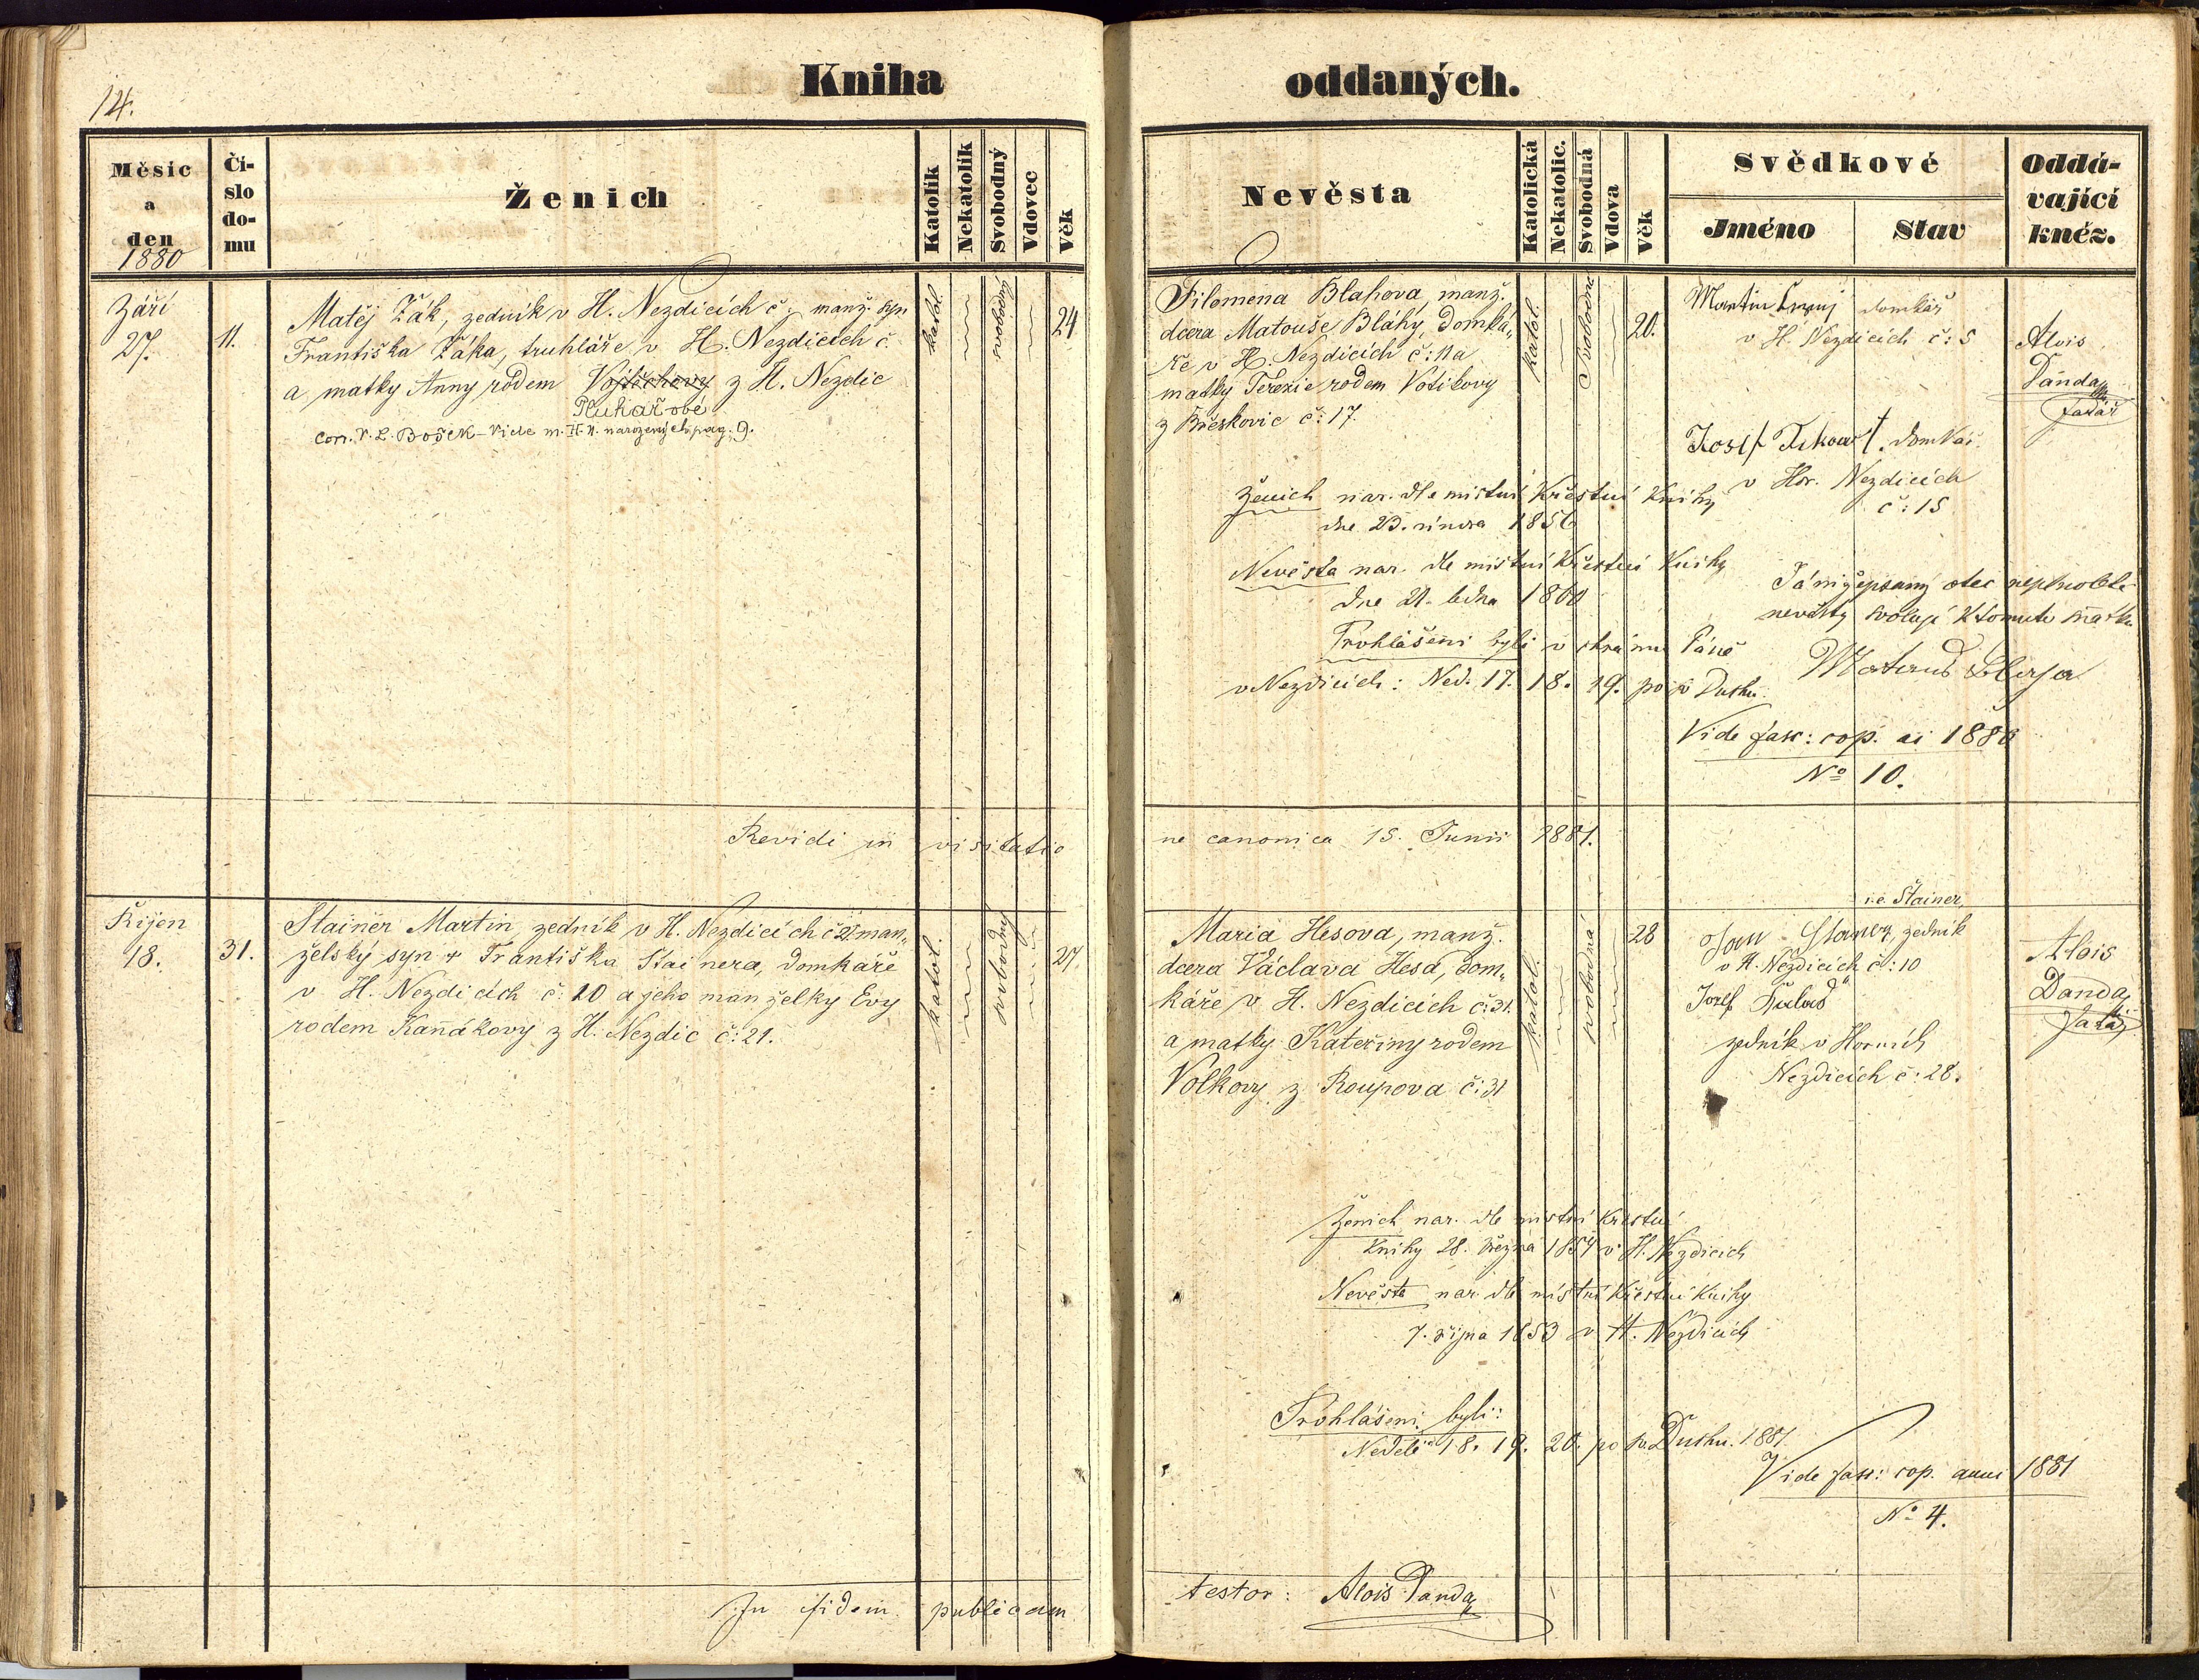 14.
Kniha oddaných.
Měsíc
a
den
1880
Čí-
slo
do-
mu
Ženich
Katolík
Nekatolík
Svobodný
Vdovec
Věk
Nevěsta
Katolická
Nekatolic.
Svobodná
Vdova
Věk
Svědkové
Jméno
Stav
Oddá-
vající
kněz.
Září
27.
11.
Matěj Žák, zedník v H. Nezdicích č: manž. syn
Františka Žáka, truhláře v H. Nezdicích č
a matky Anny rodem Vojtěchovy z H. Nezdic
Pluhařové
Corr. V. L. Bošek - Vide m. H. N. narozených pag. 9.
katol.
svobodný
24
Filomena Blahova, manž.
dcera Matouše Bláhy, domká„
ře v H. Nezdicích č: 11 a
matky Terezie rodem Votikovy
z Břeskovic č: 17.
katol.
svobodná
20.
Martin domkář
v H. Nezdicích č: 5
Josef domkář
v Hor. Nezdicích
č: 15
Alois
Panda
farář
Ženich nar. dle místní Křestní Knihy
dne 23. února 1856
Nevěsta nar. dle místní Křestní Knihy
dne 21. ledna 1860
Prohlášeni byli v chrámu Páně
v Nezdicích: Ned. 17. 18. 19. po sv Duchu.
otec nepl
nevěsty svoluje k tomuto sňatku
Vide fasc: cop. ai 1880
No 10.
Revidi in visitatione canonica 15. Junii 1881.
Říjen
18.
31.
Stainer Martin, zedník v H. Nezdicích č 21. man„
želský syn + Františka Stainera, domkáře
v H. Nezdicích č: 10 a jeho manželky Evy
rodem Kaňákovy z H. Nezdic č: 21.
katol.
svobodný
27.
Maria Hesova, manž.
dcera Václava Hesa, dom„
káře v H. Nezdicích č: 31.
a matky Kateřiny rodem
Volkovy z Roupova č: 31
katol.
svobodná
28
i. e. Štainer
Jan zedník
v H. Nezdicích č: 10
Josef
zedník v Horních
Nezdicích č: 28.
Alois
Panda
farář
Ženich nar. dle místní Křestní
Knihy 28. března 1854 v H. Nezdicích
Nevěsta nar. dle místní Křestní Knihy
7. října 1853 v H. Nezdicích
Prohlášeni byli:
Neděli 18. 19. 20. po sv. Duchu. 1881.
Vide fasc: cop. anni 1881
No 4.
In fidem publicam testor: Alois Panda